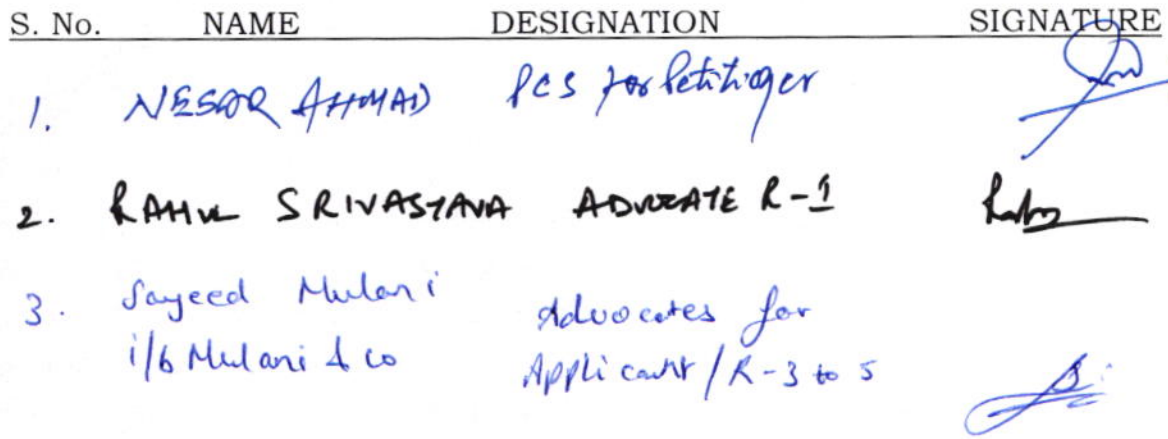 S. No. NAME DESIGNATION SIGNATURE
1. NESAR AHMAD PCS for Petitioner
2. RAHUL SRIVASTAVA ADVOCATE R-1
3. Sayeed Mulani Advocates for
i/b Mulani & co Applicant / R-3 to 5